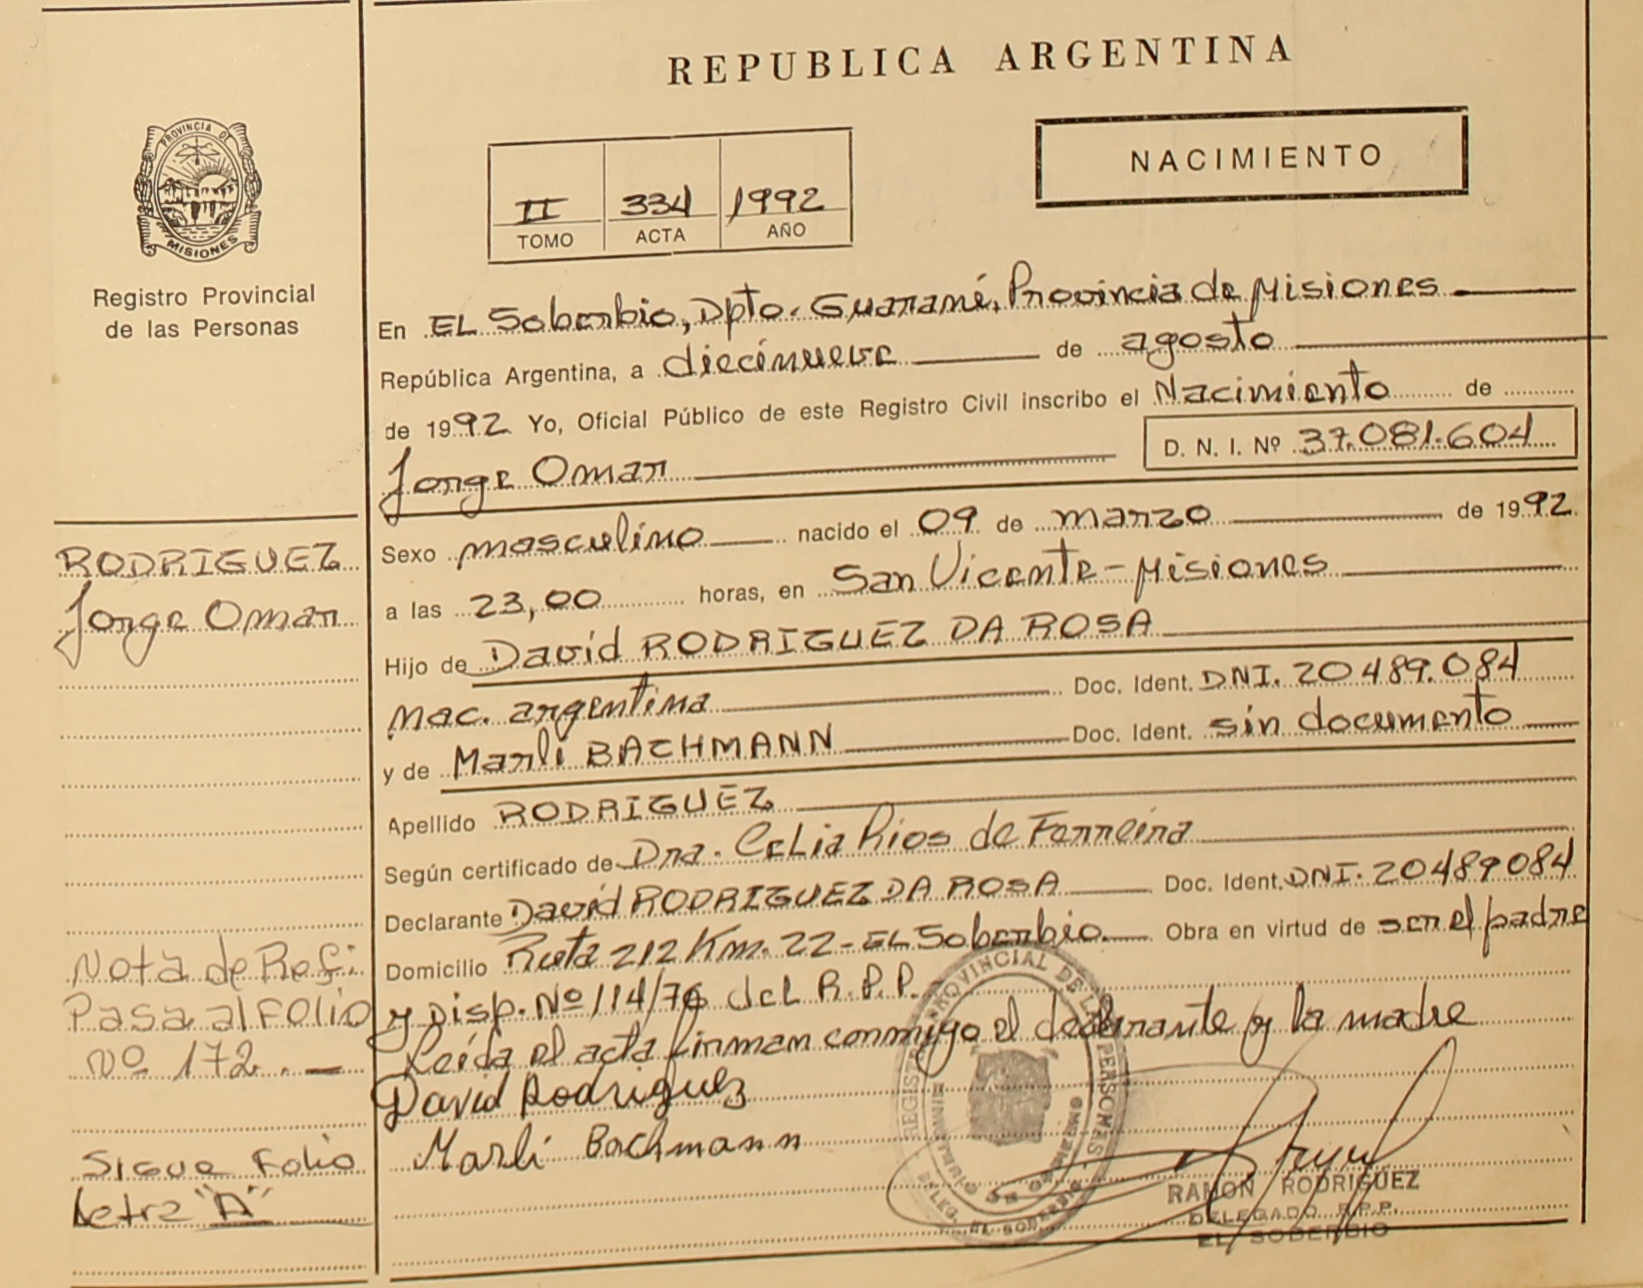 REPUBLICA ARGENTINA
PROVINCIA DE
MISIONES
Registro Provincial
de las Personas
II 334 1992
TOMO ACTA AÑO
NACIMIENTO
En EL Soberbio, Dpto. Guaraní, Provincia de Misiones
República Argentina, a diecinueve de agosto
de 1992 Yo, Oficial Público de este Registro Civil inscribo el Nacimiento de
Jorge Omar
D. N. I. Nº 37.081.604
Sexo masculino nacido el 09 de marzo de 1992
a las 23,00 horas, en San Vicente - Misiones
Hijo de David RODRIGUEZ DA ROSA
nac. argentina Doc. Ident. DNI. 20489.084
y de Marli BACHMANN Doc. Ident. sin documento
Apellido RODRIGUEZ
Según certificado de Dra. Celia Rios de Ferreira
Declarante David RODRIGUEZ DA ROSA Doc. Ident. DNI. 20489084
Domicilio Ruta 212 Km. 22 - EL Soberbio. Obra en virtud de ser el padre
y Disp. Nº 114/76 del R.P.P.
Leída el acta firman conmigo el declarante y la madre
David Rodriguez
Marli Bachmann
RODRIGUEZ
Jorge Omar
Nota de Ref:
Pasa al FOLIO
Nº 172. -
Sigue Folio
Letra "A"
REGISTRO PROVINCIAL DE LAS PERSONAS
DELEG. EL SOBERBIO
RAMON RODRIGUEZ
DELEGADO R.P.P.
EL SOBERBIO